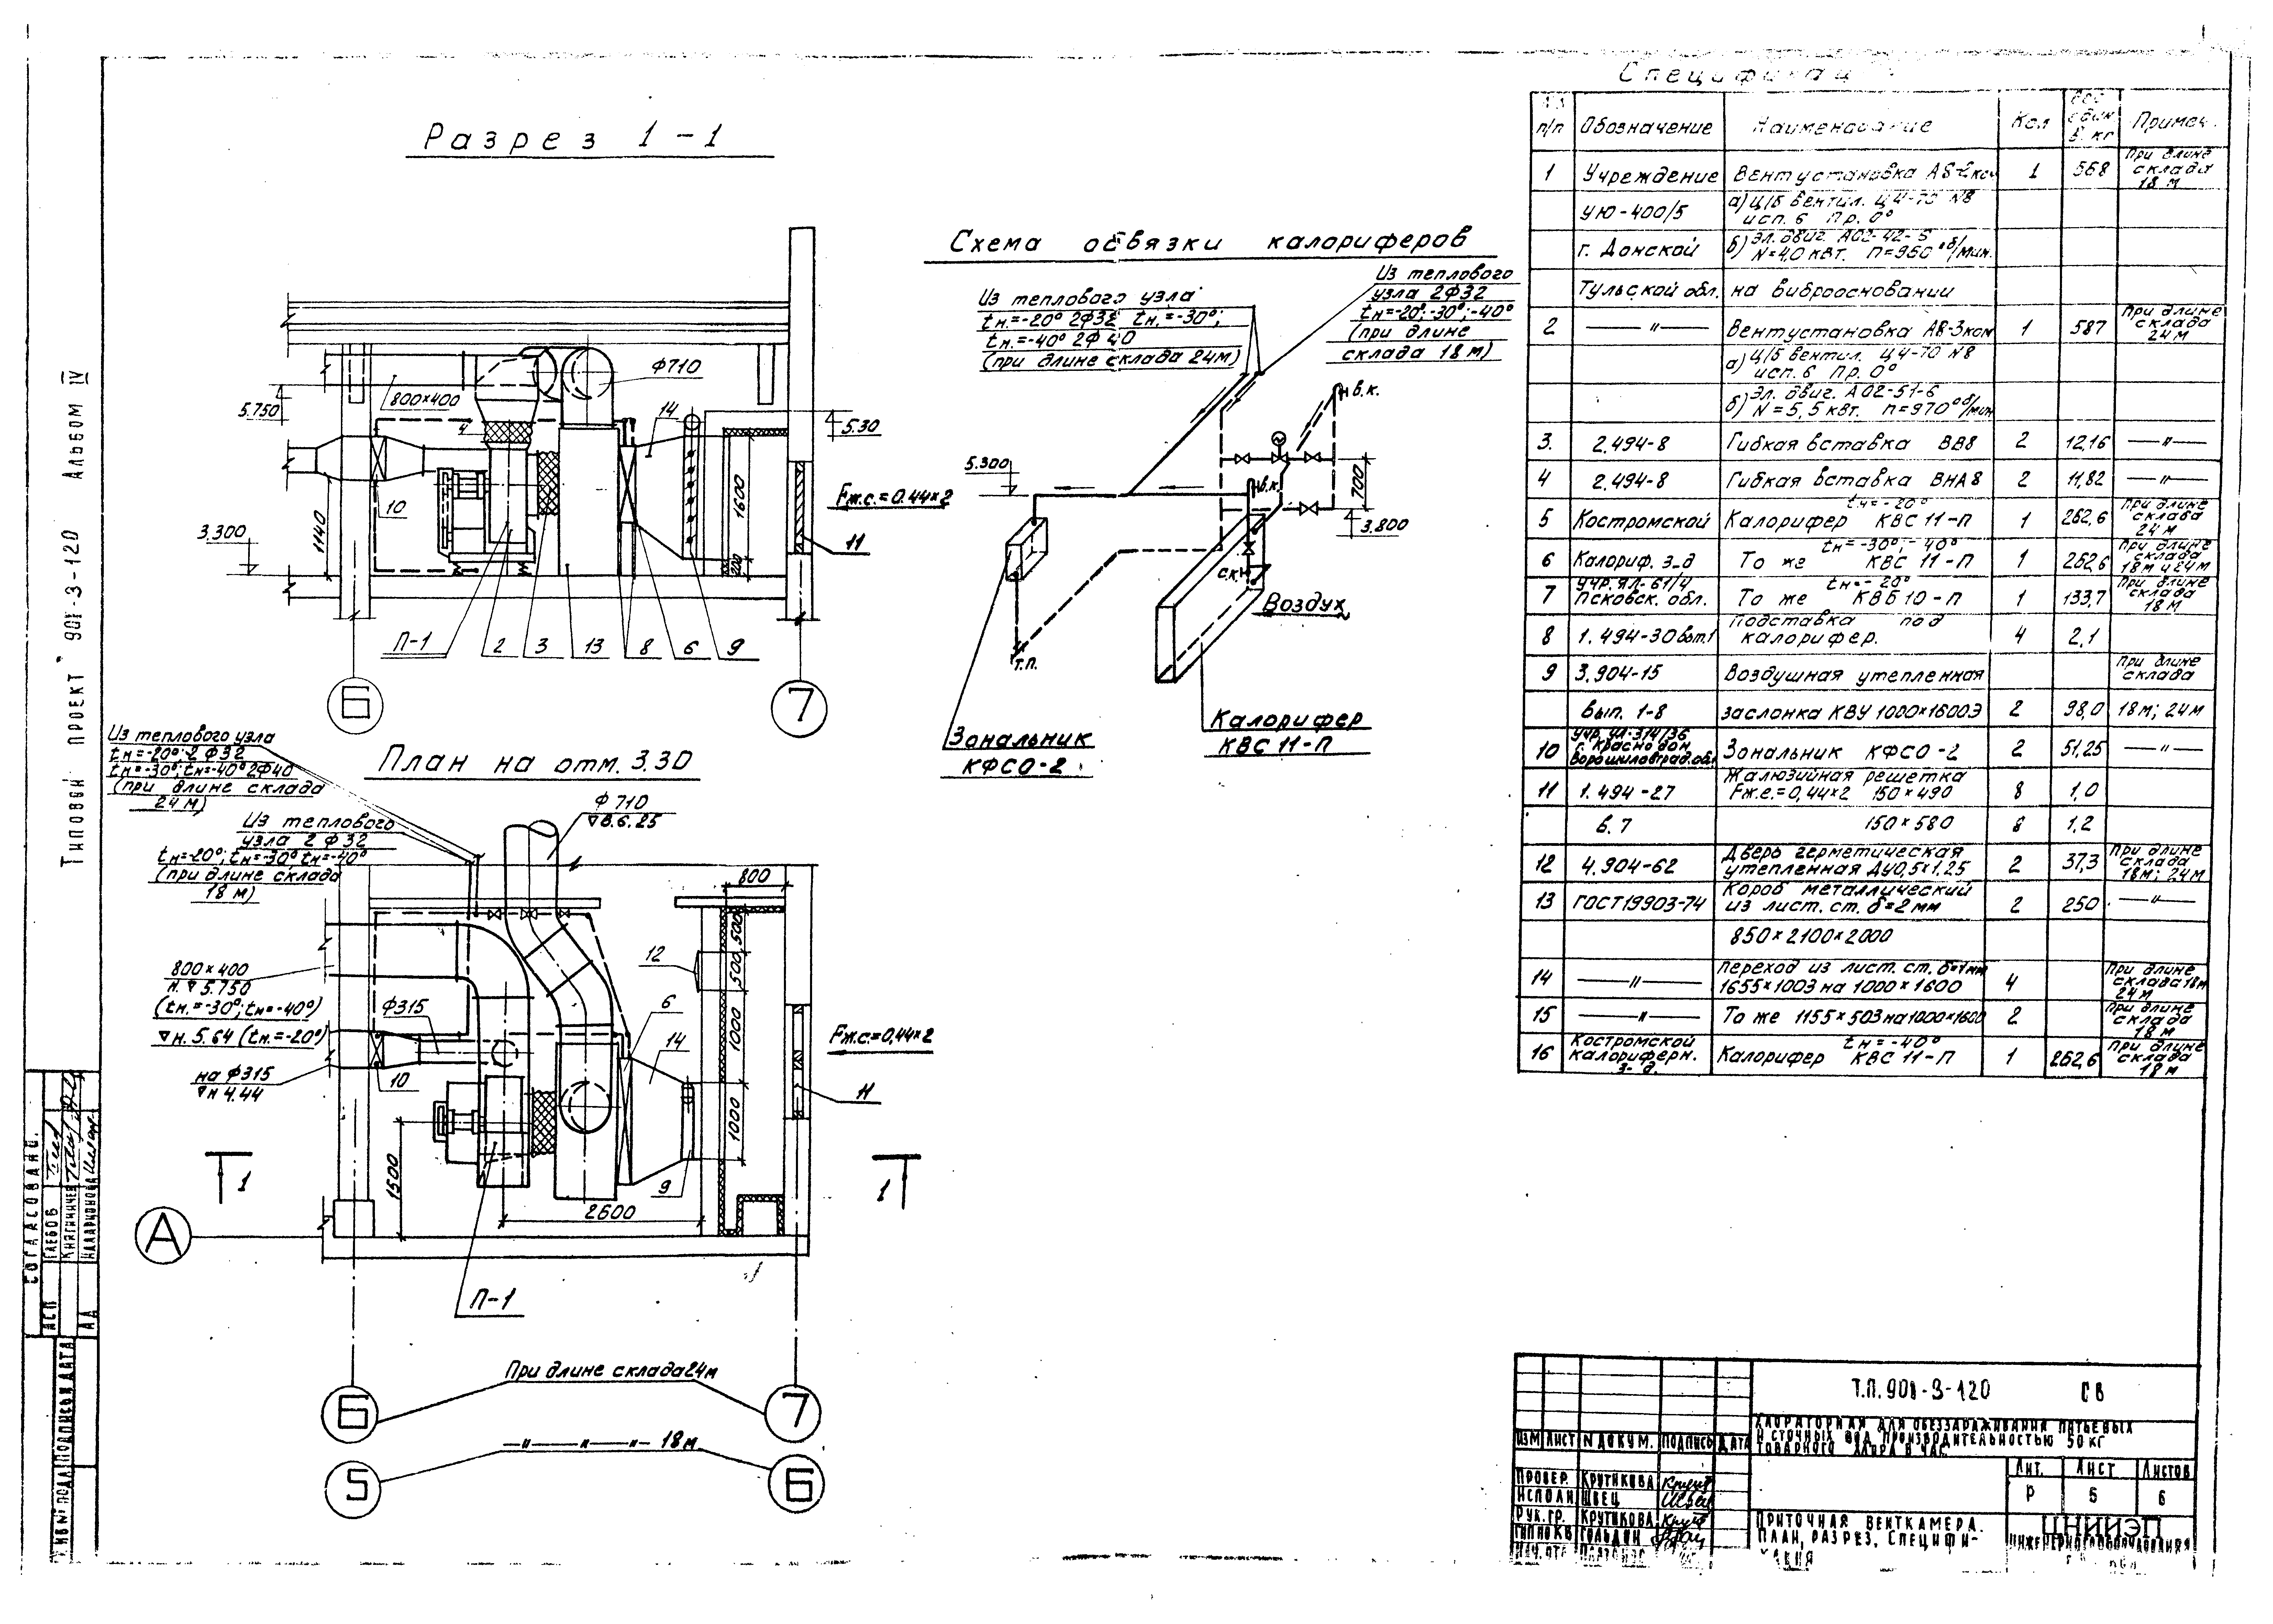 Типовой проект 901-3-120 Альбом IV
Разрез 1-1
5.750
800×400
Ф710
14
5.30
4
10
1140
1600
200
3.300
Fж.с.=0.44×2
11
П-1
2
3
13
8
6
9
Б
7
Схема обвязки калориферов
Из теплового узла
tн.=-20° 2Ф32, tн.=-30°;
tн.=-40° 2Ф40
(при длине склада 24м)
Из теплового
узла 2Ф32
tн=-20°;-30°;-40°
(при длине
склада 18м)
в.к.
5.300
700
3.800
в.к.
с.к.
Воздух
т.п.
Зональник
КФСО-2
Калорифер
КВС 11-П
План на отм. 3.30
Из теплового узла
tн=-20°; 2Ф32
tн=-30°; tн=-40° 2Ф40
(при длине склада
24м)
Из теплового
узла 2Ф32
tн=-20°; tн=-30° tн=-40°
(при длине склада
18м)
Ф710
∇в.6.25
800
500
500
1000
1000
12
800×400
н.∇5.750
(tн.=-30°; tн=-40°)
∇н.5.64 (tн.=-20°)
Ф315
на Ф315
∇н 4.44
10
6
14
Fж.с.=0,44×2
11
9
1500
2600
1
1
А
П-1
При длине склада 24м
Б
7
—〃—〃—〃— 18м
5
Б
Спецификац
п/п Обозначение Наименование Кол Вес един В. кг Примеч.
1 Учреждение Вентустановка А8-2ком 1 568 При длине склада 18м
УЮ-400/5 а) Ц/Б вентил. Ц4-70 N8 исп. 6 Пр. 0°
г. Донской б) Эл. двиг. АО2-42-6 N=4,0 квт. n=950 об/мин.
Тульской обл. на виброосновании
2 —〃— Вентустановка А8-3ком 1 587 При длине склада 24м
а) Ц/Б вентил. Ц4-70 N8 исп. 6 Пр. 0°
б) Эл. двиг. АО2-51-6 N=5,5 квт. n=970 об/мин
3. 2.494-8 Гибкая вставка ВВ8 2 12,16 —〃—
4 2.494-8 Гибкая вставка ВНА8 2 11,82 —〃—
5 Костромской Калорифер tн=-20° КВС 11-П 1 262,6 При длине склада 24м
6 Калориф. з-д То же tн=-30°;-40° КВС 11-П 1 262,6 При длине склада 18м и 24м
7 Учр. ЯЛ-61/4 Псковск. обл. То же tн=-20° КВБ 10-П 1 133,7 При длине склада 18м
8 1.494-30 вып.1 Подставка под калорифер. 4 2,1
9 3.904-15 Воздушная утепленная При длине склада
Вып. 1-8 заслонка КВУ 1000×1600Э 2 98,0 18м; 24м
10 Учр. УЛ-314/36 г. Краснодон Ворошиловград. обл. Зональник КФСО-2 2 51,25 —〃—
11 1.494-27 Жалюзийная решетка Fж.с.=0,44×2 150×490 8 1,0
в. 7 150×580 8 1,2
12 4.904-62 Дверь герметическая утепленная ДУ0,5×1.25 2 37,3 При длине склада 18м; 24м
13 ГОСТ 19903-74 Короб металлический из лист. ст. δ=2мм 2 250 —〃—
850×2100×2000
14 —〃— Переход из лист. ст. δ=1мм 1655×1003 на 1000×1600 4 При длине склада 18м 24м
15 —〃— То же 1155×503 на 1000×1600 2 При длине склада 18м
16 Костромской калориферн. з-д. Калорифер tн=-40° КВС 11-П 1 262,6 При длине склада 18м
Т.П. 901-3-120 СВ
Хлораторная для обеззараживания питьевых
и сточных вод производительностью 50 кг
товарного хлора в час
Изм Лист N докум. Подпись Дата
Провер. Крутикова
Исполн Швец
Рук.гр. Крутикова
Гольдин
Лит. Лист Листов
Р 5 6
Приточная венткамера.
План, разрез, специфи-
кация
ЦНИИЭП
инженерного оборудования
Согласовано.
Глебов
Княгиничев
АСП
АА
Инв N° подл Подпись и дата